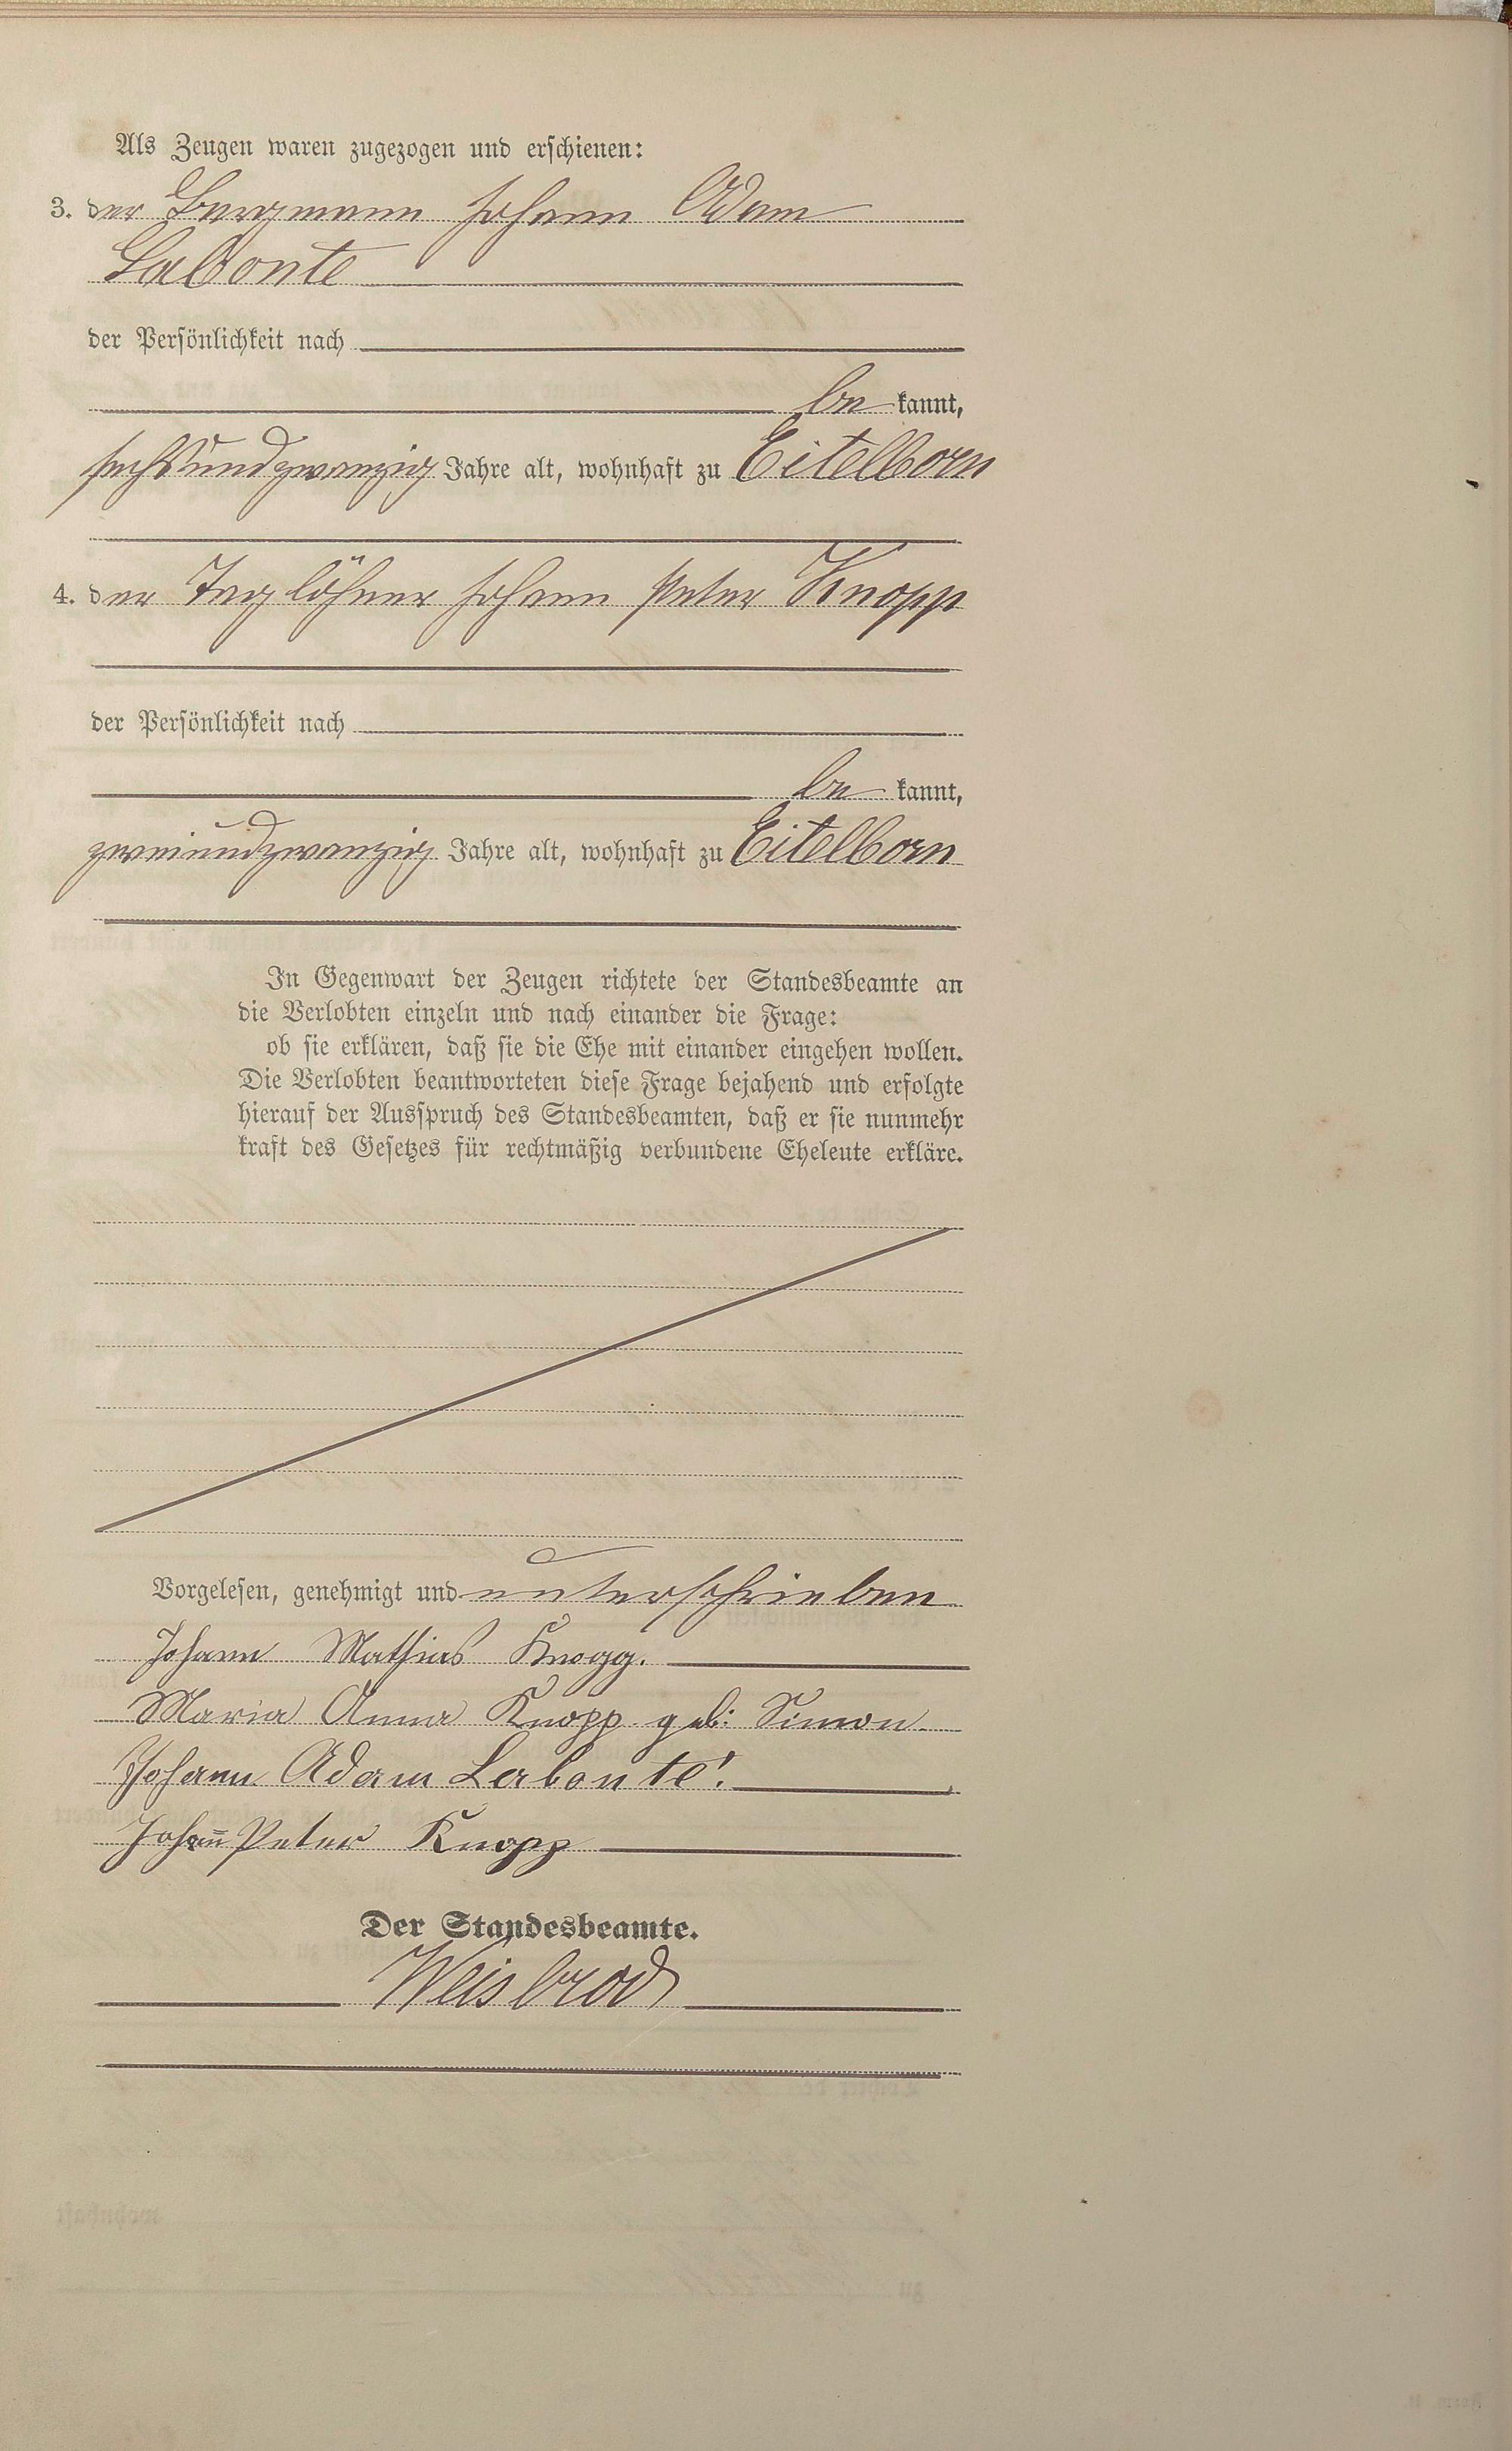 Als Zeugen waren zugezogen und erschienen:
3. der Bergmann Johann Adam
Labonte
der Persönlichkeit nach
be kannt,
sechsundzwanzig Jahre alt, wohnhaft zu Eitelborn
4. der Taglöhner Johann Peter Knopp
der Persönlichkeit nach
be kannt,
zweiundzwanzig Jahre alt, wohnhaft zu Eitelborn
In Gegenwart der Zeugen richtete der Standesbeamte an
die Verlobten einzeln und nach einander die Frage:
ob sie erklären, daß sie die Ehe mit einander eingehen wollen.
Die Verlobten beantworteten diese Frage bejahend und erfolgte
hierauf der Ausspruch des Standesbeamten, daß er sie nunmehr
kraft des Gesetzes für rechtmäßig verbundene Eheleute erkläre.
Vorgelesen, genehmigt und unterschrieben
Johann Mathias Knopp.
Maria Anna Knopp geb: Simon
Johann Adam Labonte!
Johann Peter Knopp
Der Standesbeamte.
Weisbrod